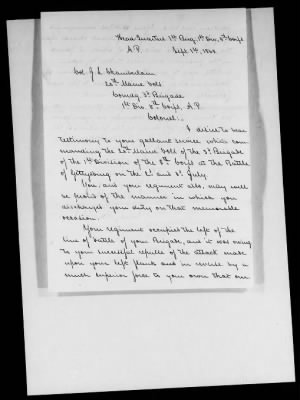 Head Quarters 1st Brig. 1st Div. 5th Corps
A.P. Sept. 1st, 1863.
Col. J. L. Chamberlain
20th Maine Vols
Comdg. 3d. Brigade
1st Div. 5th Corps, A.P.
Colonel:
I desire to bear
testimony to your gallant service while com-
manding the 20th Maine Vols of the 3d. Brigade
of the 1st Division of the 5th Corps at the Battle
of Gettysburg on the 2d and 3d. July.
You, and your regiment also, may well
be proud of the manner in which you
discharged your duty on that memorable
occasion.
Your regiment occupied the left of the
line of battle of your Brigade, and it was owing
to your successful repulse of the attack made
upon your left flank and in reverse by a
much superior force to your own that our